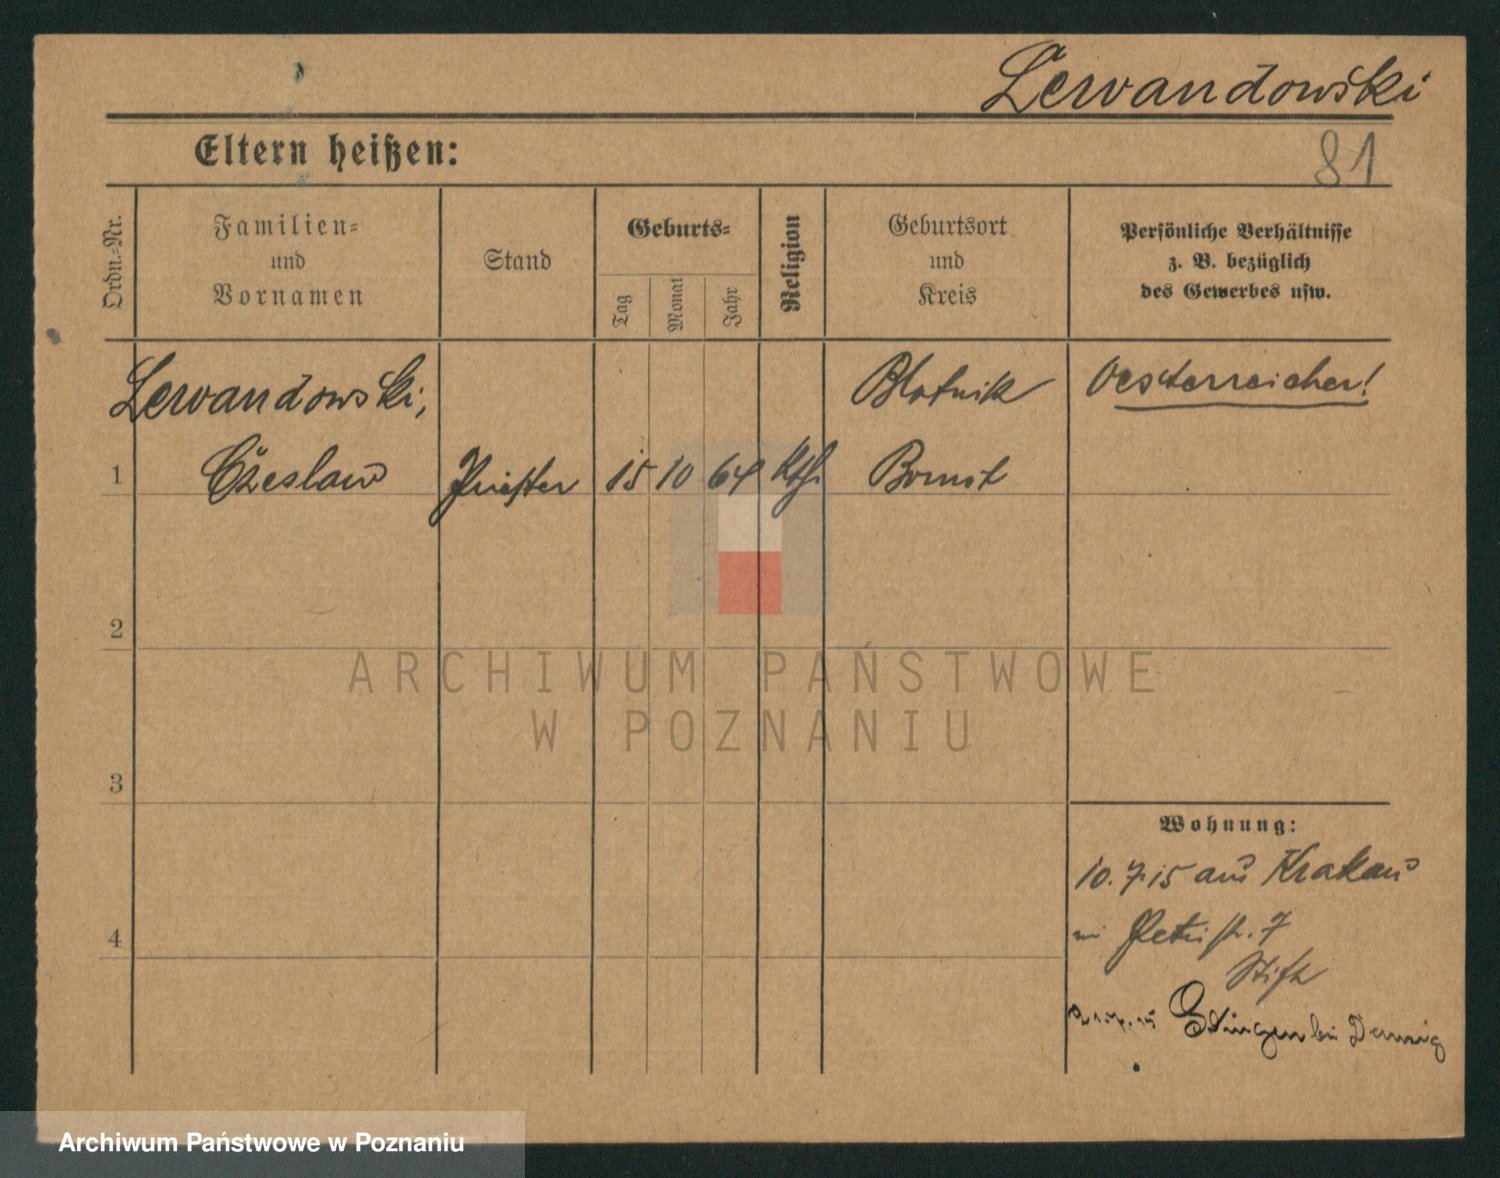 Lewandowski
Eltern heißen:
81
Ordn.-Nr.
Familien-
und
Vornamen
Stand
Geburts-
Tag
Monat
Jahr
Religion
Geburtsort
und
Kreis
Persönliche Verhältnisse
z. B. bezüglich
des Gewerbes usw.
Lewandowski,
Blotnik
Oesterreicher!
1
Czeslaw
Priester
15
10
64
Kth
Bomst
2
ARCHIWUM PAŃSTWOWE
W POZNANIU
3
Wohnung:
10.7.15 aus Krakau
4
Petristr. 7
Stift
bei Danzig
Archiwum Państwowe w Poznaniu